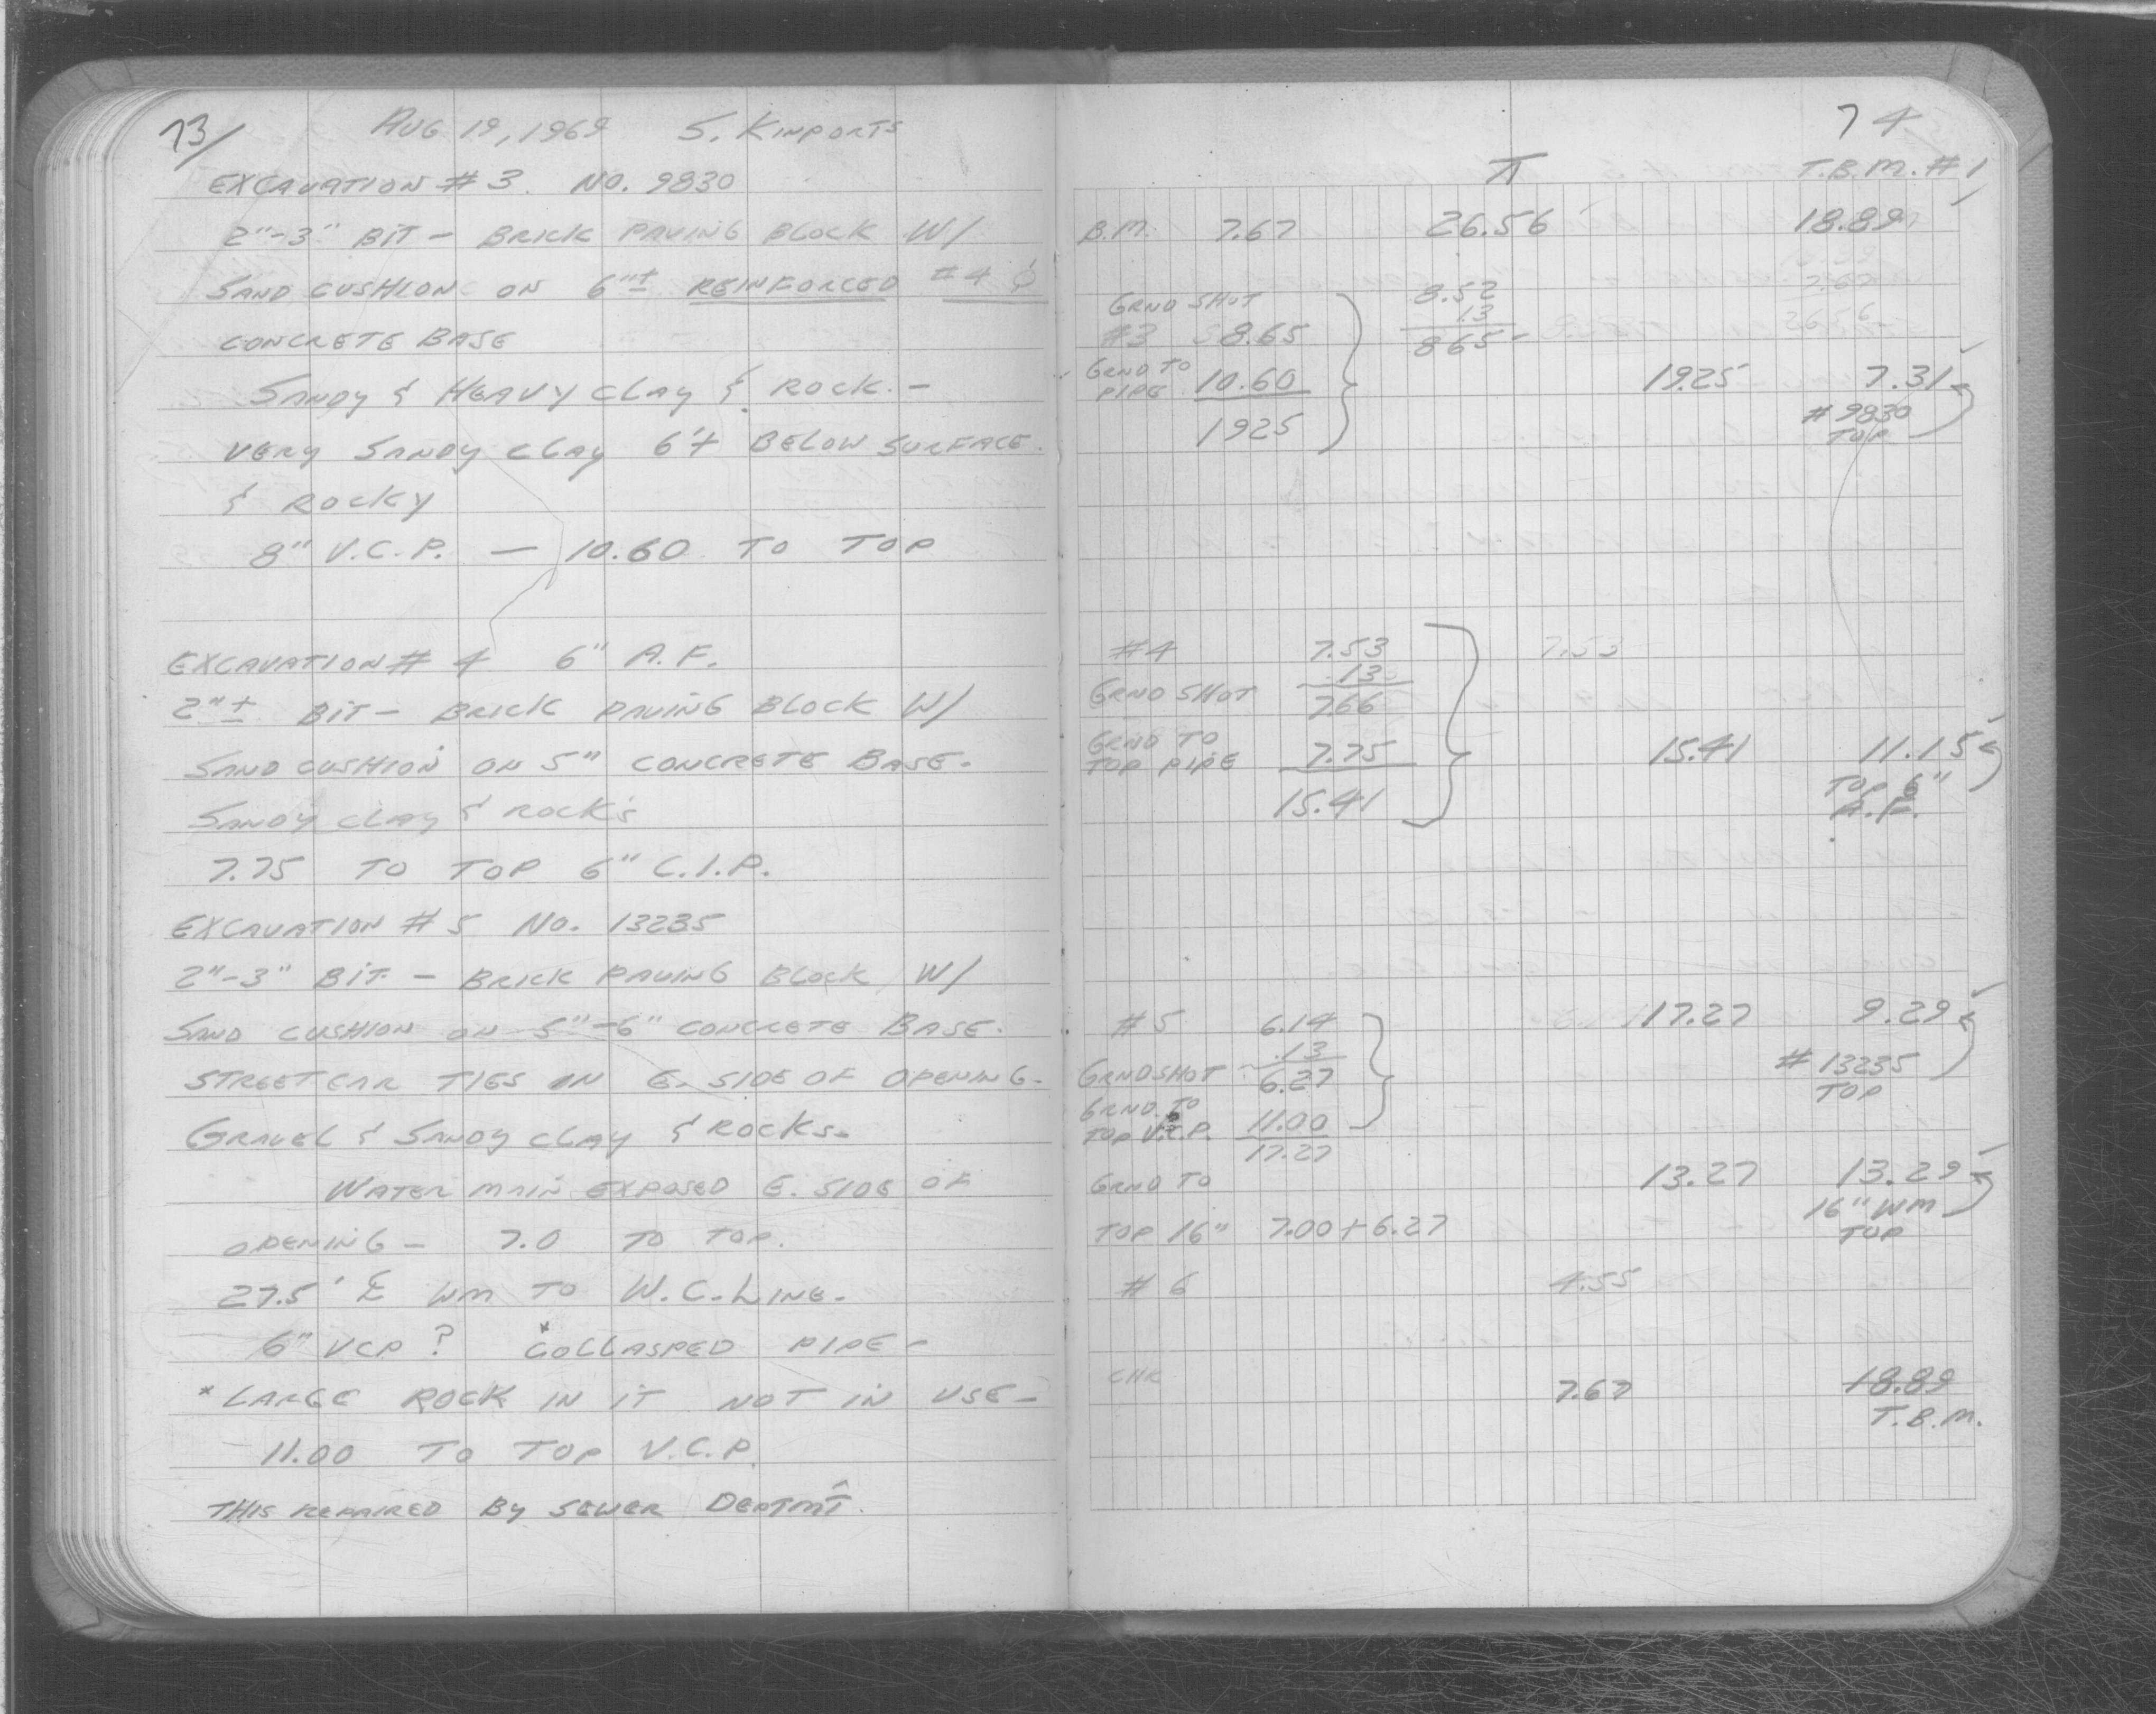 73/ AUG 19, 1969 S. KINPORTS
EXCAVATION # 3 NO. 9830
2"-3" BIT - BRICK PAVING BLOCK W/
SAND CUSHION ON 6"± REINFORCED #4 ϕ
CONCRETE BASE
SANDY & HEAVY CLAY & ROCK. -
VERY SANDY CLAY 6'± BELOW SURFACE.
& ROCKY
8" V.C.P. — 10.60 TO TOP
EXCAVATION # 4 6" A.F.
2"± BIT - BRICK PAVING BLOCK W/
SAND CUSHION ON 5" CONCRETE BASE.
SANDY CLAY & ROCK'S
7.75 TO TOP 6" C.I.P.
EXCAVATION # 5 NO. 13235
2"-3" BIT - BRICK PAVING BLOCK W/
SAND CUSHION ON 5"-6" CONCRETE BASE.
STREETCAR TIES IN E. SIDE OF OPENING-
GRAVEL & SANDY CLAY & ROCKS-
WATER MAIN EXPOSED E. SIDE OF
OPENING - 7.0 TO TOP.
27.5' ℄ WM TO W.C. LINE-
6" VCP ? *COLLASPED PIPE -
* LARGE ROCK IN IT NOT IN USE -
11.00 TO TOP V.C.P.
THIS REPAIRED BY SEWER DEPTMT.
74
⊼ T.B.M. # 1
B.M. 7.67 26.56 18.89
7.67
26.56
GRND SHOT 8.52
#3 8.65 .13
865
GRND TO
PIPE 10.60 19.25 7.31
1925 # 9830
TOP
#4 7.53 7.53
.13
GRND SHOT 7.66
GRND TO
TOP PIPE 7.75 15.41 11.15
15.41 TOP 6"
A.F.
#5 6.14 17.27 9.29
.13
GRND SHOT 6.27 # 13235
TOP
GRND TO
TOP V.C.P. 11.00
17.27
GRND TO 13.27 13.29
16" WM
TOP 16" 7.00 + 6.27 TOP
# 6 4.55
CHK 7.67 18.89
T.B.M.